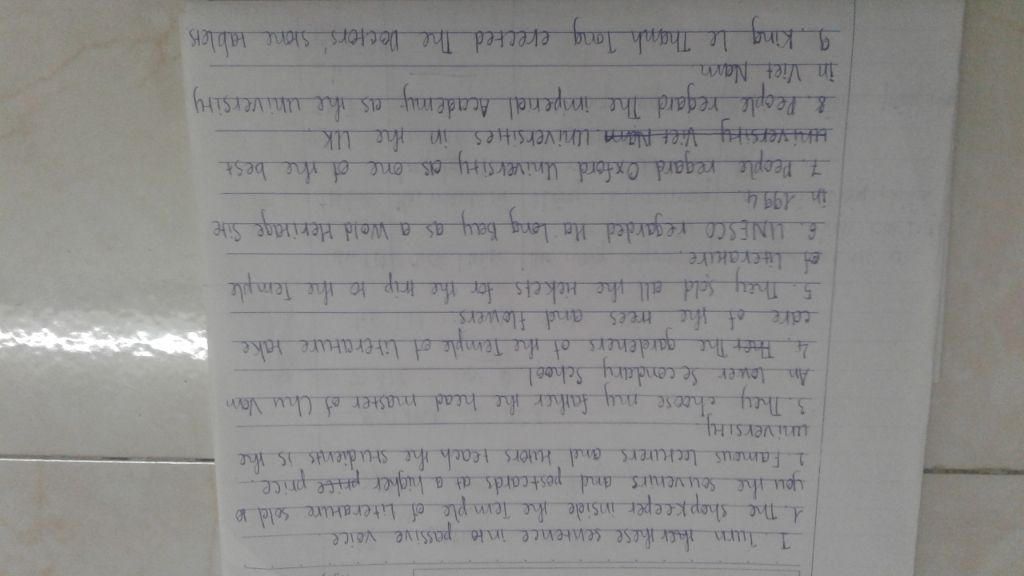 I Turn these sentence into passive voice.
1. The shopkeeper inside the Temple of Literature sold to
you the souvenirs and postcards at a higher price price.
2 Famous lecturers and tutors teach the students is the
university
3. They choose my father the head master of Chu Van
An lower secondary School
4. The gardeners of the Temple of Literature take
care of the trees and flowers.
5. They sold all the tickets for the trip to the Temple
of Literature.
6. UNESCO regarded Ha Long Bay as a Wold Heritage Site
in 1994
7. People regard Oxford University as one of the best
university Viet Nam universities in the UK.
8. People regard The imperial Academy as the university
in Viet Nam.
9. King Le Thanh Tong erected The Doctors' stone tablets